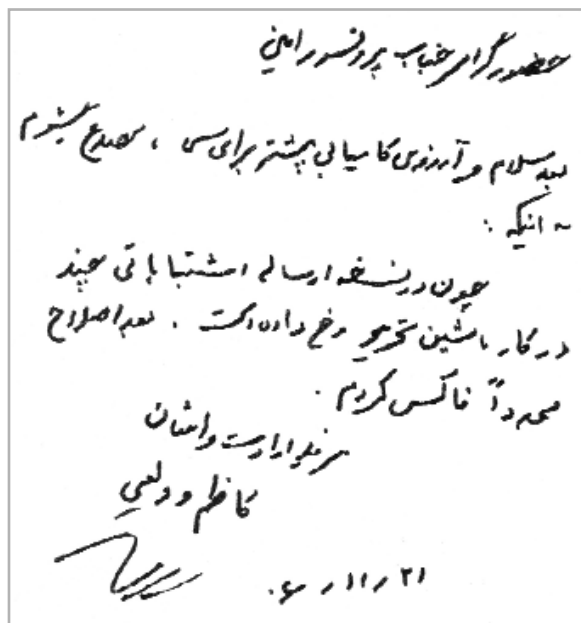 حضور گرامی جناب پروفسور امینی
بعد سلام و آرزوی کامیابی بیشتر برای سی ، مصدع میشوم
به اینکه :
چون در نسخه ارساله اشتباهاتی چند
در کار ماشین تحریر رخ داده است . بعد اصلاح
مجدداً فاکس کردم .
ارادت و امتنان
کاظم ودیعی
۲۱ ر ۱۱ ر ۰۶